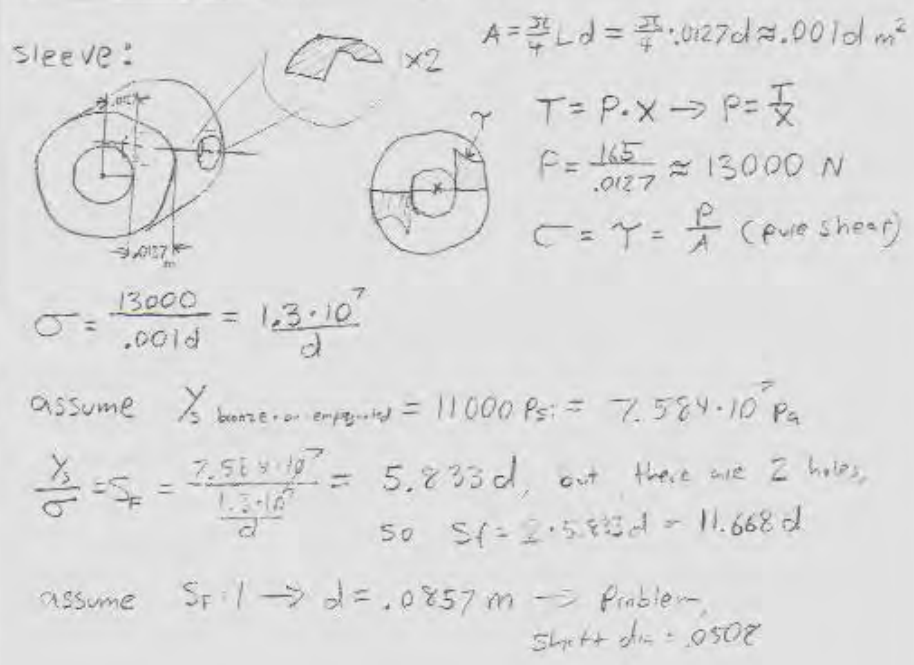 sleeve:
1x2
A = π/4 L d = π/4 · .0127d ≈ .001d m²
T = P·x → P = T/x
P = 165/.0127 ≈ 13000 N
σ = τ = P/A (pure shear)
τ
.0127 m
σ = 13000/.001d = 1.3·10⁷/d
assume Ys = 11000 Psi = 7.584·10⁷ Pa
Ys/σ = SF = 7.584·10⁷/(1.3·10⁷/d) = 5.833d, but there are 2 holes,
so Sf = 2·5.833d = 11.668d
assume SF = 1 → d = .0857 m → Problem,
shaft dia = .0508